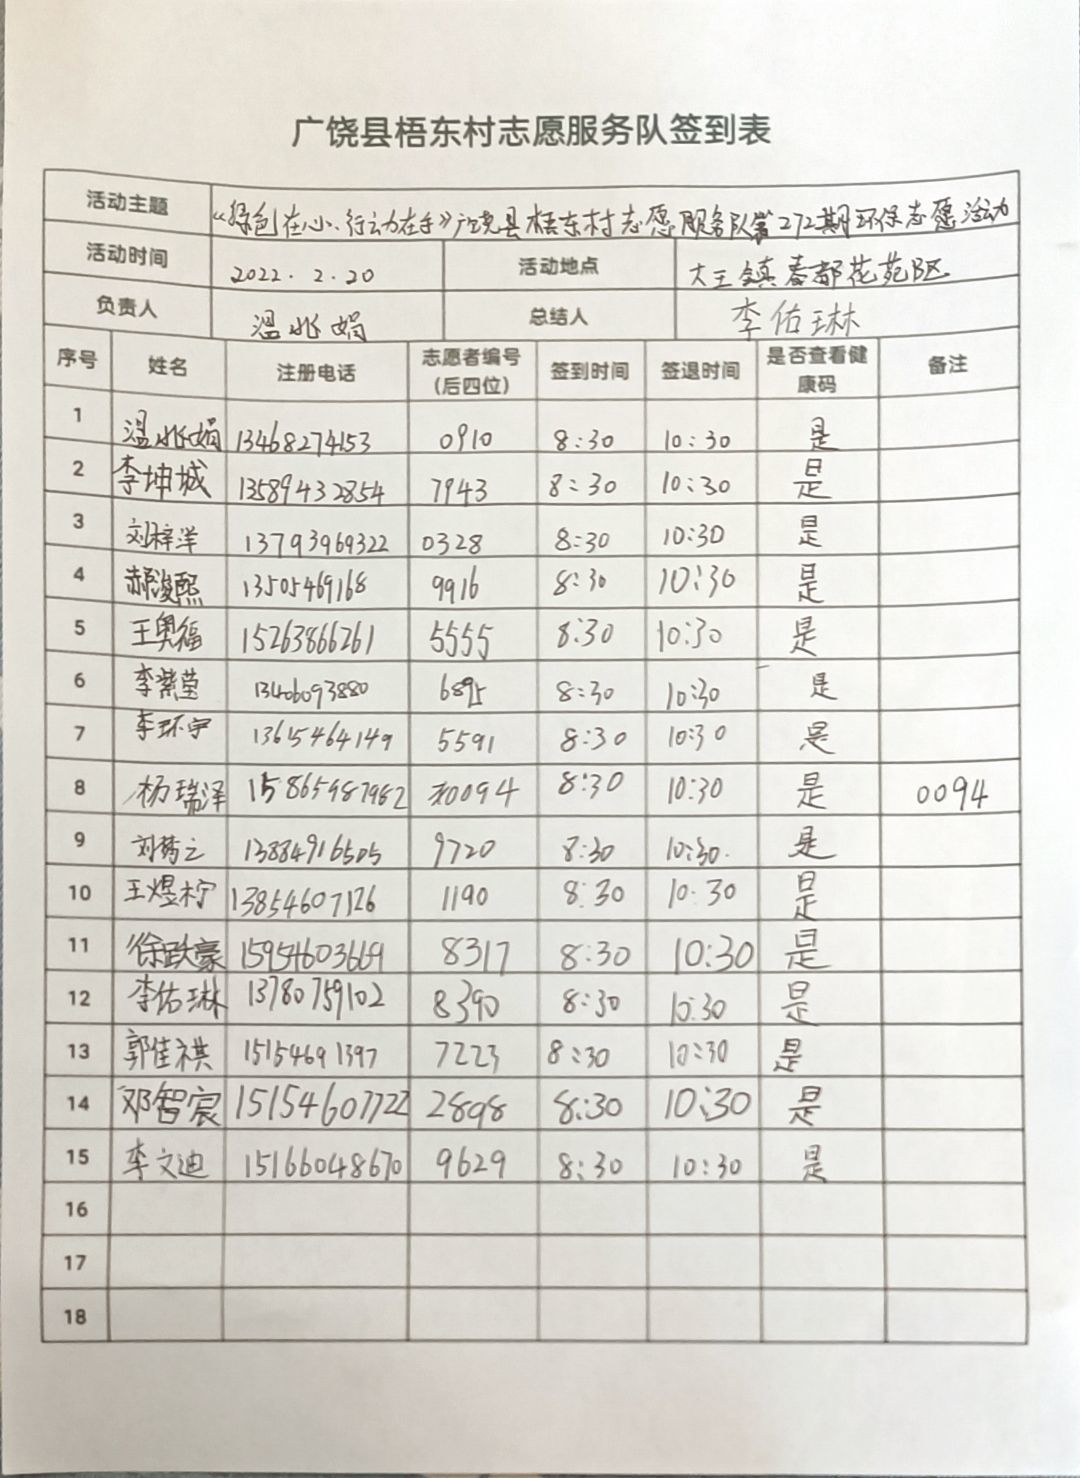 广饶县梧东村志愿服务队签到表
活动主题 《绿色在心、行动在手》广饶县梧东村志愿服务队第272期环保志愿活动
活动时间 2022.2.20 活动地点 大王镇春都花苑B区
负责人 温兆娟 总结人 李佑琳
序号 姓名 注册电话 志愿者编号(后四位) 签到时间 签退时间 是否查看健康码 备注
1 温兆娟 13468274153 0910 8:30 10:30 是
2 李坤城 13589432854 7943 8:30 10:30 是
3 刘梓洋 13793969322 0328 8:30 10:30 是
4 郝浚熙 13505469168 9916 8:30 10:30 是
5 王奥福 15263866261 5555 8:30 10:30 是
6 李紫莹 13406093880 6895 8:30 10:30 是
7 李环宇 13615464149 5591 8:30 10:30 是
8 杨瑞泽 15865987982 0094 8:30 10:30 是 0094
9 刘 13884916505 9720 8:30 10:30. 是
10 王煜柠 13854607126 1190 8:30 10:30 是
11 徐跃豪 15954603669 8317 8:30 10:30 是
12 李佑琳 13780759102 8390 8:30 10:30 是
13 郭佳祺 15154691397 7223 8:30 10:30 是
14 邓智宸 15154607722 2898 8:30 10:30 是
15 李文迪 15166048670 9629 8:30 10:30 是
16
17
18